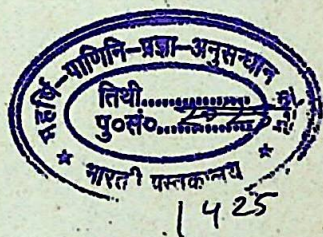 महर्षि-पाणिनि-प्रज्ञा-अनुसन्धान
तिथी..................
पु०सं०..................
भारती पुस्तकालय
1425